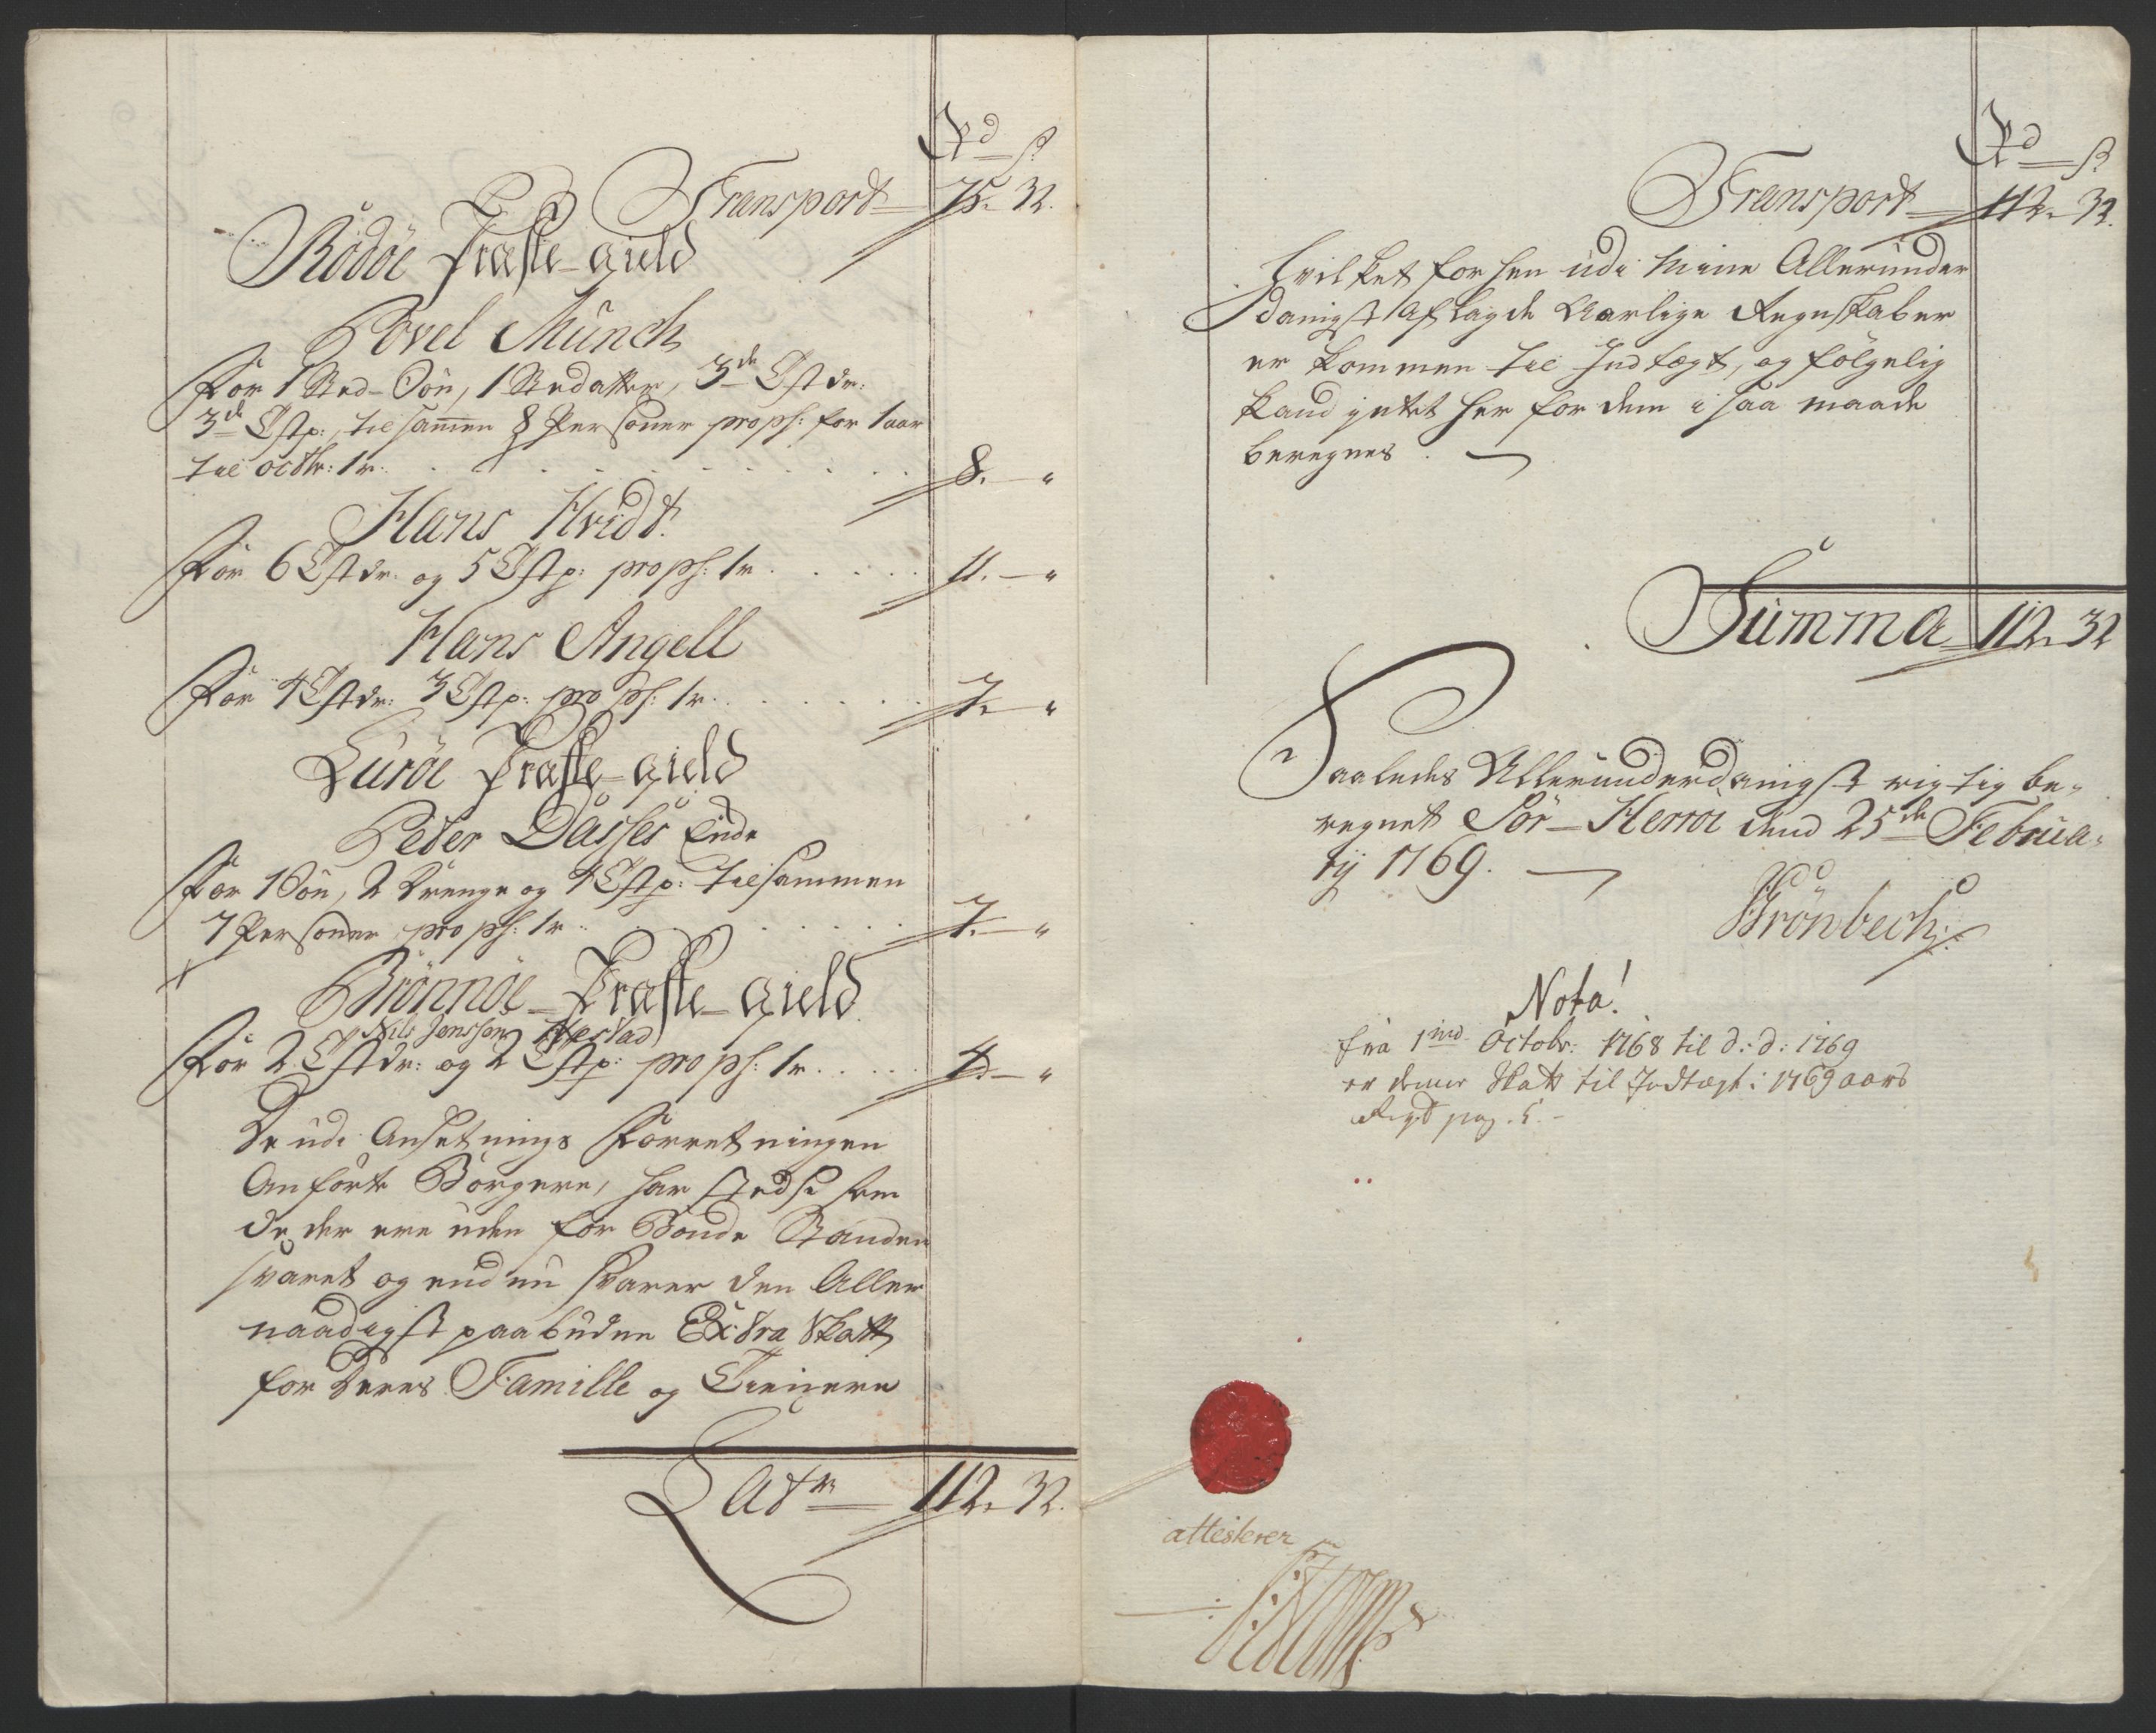 Rd ß
Transport 75. 32.
Rödöe Præste-gield
Povel Münch
For 1 Sted-Sön, 1 Stedatter, 3de Tstdr:
3de Tstp:, tilsammen 8 Personer pro ps: for 1 aar
til octbr: 1 r. 8. — "
Hans Hvidt.
For 6 Tstdr. og 5 Tstp: pro ps: 1 r. 11. — "
Hans Angell
For 4 Tstdr: 3 Tstp: pro ps: 1 r. 7. — "
Luröe Præste-gield
Peder Dasses Enke
For 1 Sön, 2 Drenge og 4 Tstp: tilsammen
7 Personer pro ps: 1 r. 7. — "
Brönnöe Præste-gield
Nils Jonsson
For 2 Tstdr: og 2 Tstp: pro ps: 1 r. 4. — "
De udi Ansetnings Forretningen
Anförte Borgere, har stedse som
de der ere uden for Bonde Standen
svaret og end nu svarer den Aller
naadigst paabudne Extra Skatt
for deres Famille og Tienere
Latr 112. 32.
Rd ß
Transport 112. 32.
Hvilket forhen udi mine Allerunder
danigst Aflagde Aarlige Regnskaber
er kommen til Indtægt, og fölgelig
kand intet her for dem i saa maade
beregnes.
Summa 112. 32
Saaledes Allerunderdanigst rigtig be-
regnet Sör-Herröe dend 25de Februa-
rij 1769.
Brönbech
Nota!
fra 1mo Octobr: 1768 til d: d: 1769
er denne Skatt til Indtægt i 1769 aars
Regsk pag. 5.
attesterer